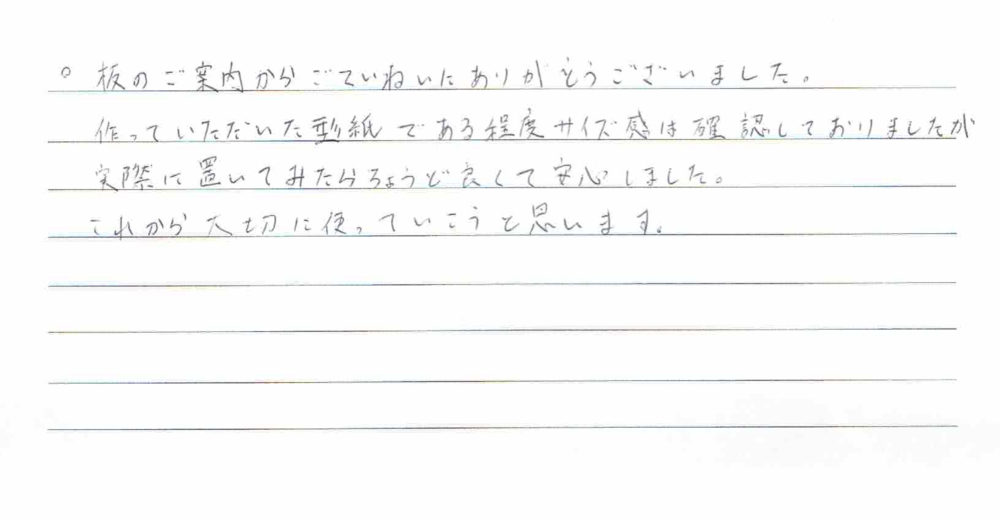 ○ 板のご案内からごていねいにありがとうございました。
作っていただいた型紙である程度サイズ感は確認しておりましたが
実際に置いてみたらちょうど良くて安心しました。
これから大切に使っていこうと思います。